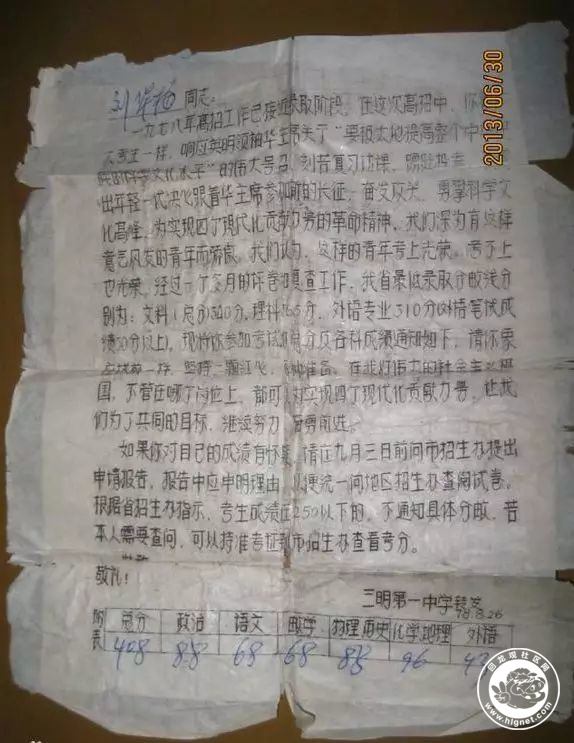 2013/06/30
刘 同志:
一九七八年高招工作已接近录取阶段,在这次高招中,你
考生一样,响应英明领袖华主席关于“要极大地提高整个中
科学文化水平”的伟大号召,刻苦复习功课,踊跃投考,
出年轻一代决心跟着华主席参加新的长征,奋发攻关,勇攀科学文
化高峰,为实现四个现代化贡献力量的革命精神,我们深为有这样
意气风发的青年而骄傲。我们认为,这样的青年考上光荣,考不上
也光荣。经过一个多月的评卷和复查工作,我省最低录取分数线分
别为:文科(总分)340分,理科 65分,外语专业310分(外语笔试成
绩50分以上)。现将你参加考试 总分及各科成绩通知如下,请你象
一样,坚持一颗红心, 准备。在我们伟大的社会主义祖
国,不管在哪个岗位上,都可 为实现四个现代化贡献力量,让我
们为了共同的目标,继续努力 奋勇前进。
如果你对自己的成绩有怀疑,请在九月三日前向市招生办提出
申请报告,报告中应申明理由,以便统一向地区招生办查阅试卷。
根据省招生办指示,考生成绩在250以下的,不通知具体分数,若
本人需要查问,可以持准考证到市招生办查看考分。
敬礼!
三明第一中学转发
78.8.26
附表 总分 政治 语文 数学 物理 历史 化学 地理 外语
408 88 68 68 88 96
回龙观社区网
www.hlgnet.com